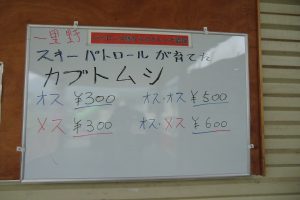 一里野
スキーパトロールが育てた
カブトムシ
オス ¥300 オス・オス ¥500
メス ¥300 オス・メス ¥600